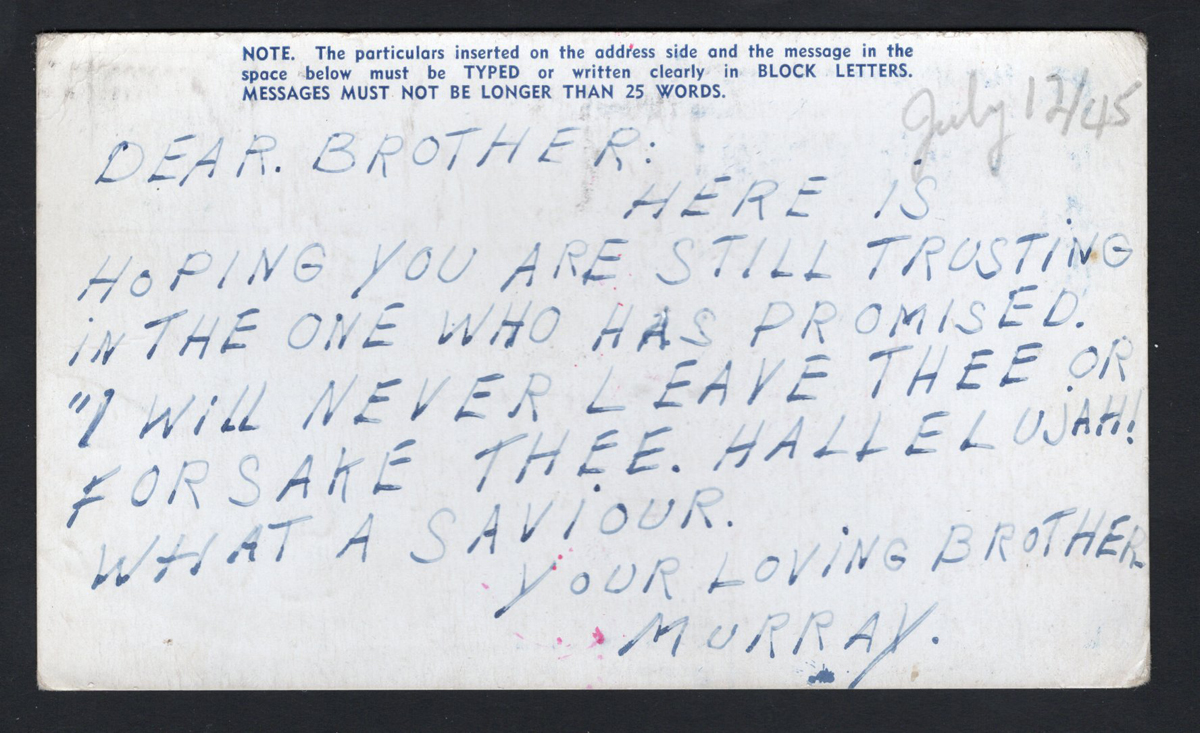 NOTE. The particulars inserted on the address side and the message in the
space below must be TYPED or written clearly in BLOCK LETTERS.
MESSAGES MUST NOT BE LONGER THAN 25 WORDS.
July 12/45
DEAR. BROTHER:
HERE IS
HOPING YOU ARE STILL TRUSTING
IN THE ONE WHO HAS PROMISED.
"I WILL NEVER LEAVE THEE OR
FORSAKE THEE. HALLELUJAH!
WHAT A SAVIOUR.
YOUR LOVING BROTHER
MURRAY.